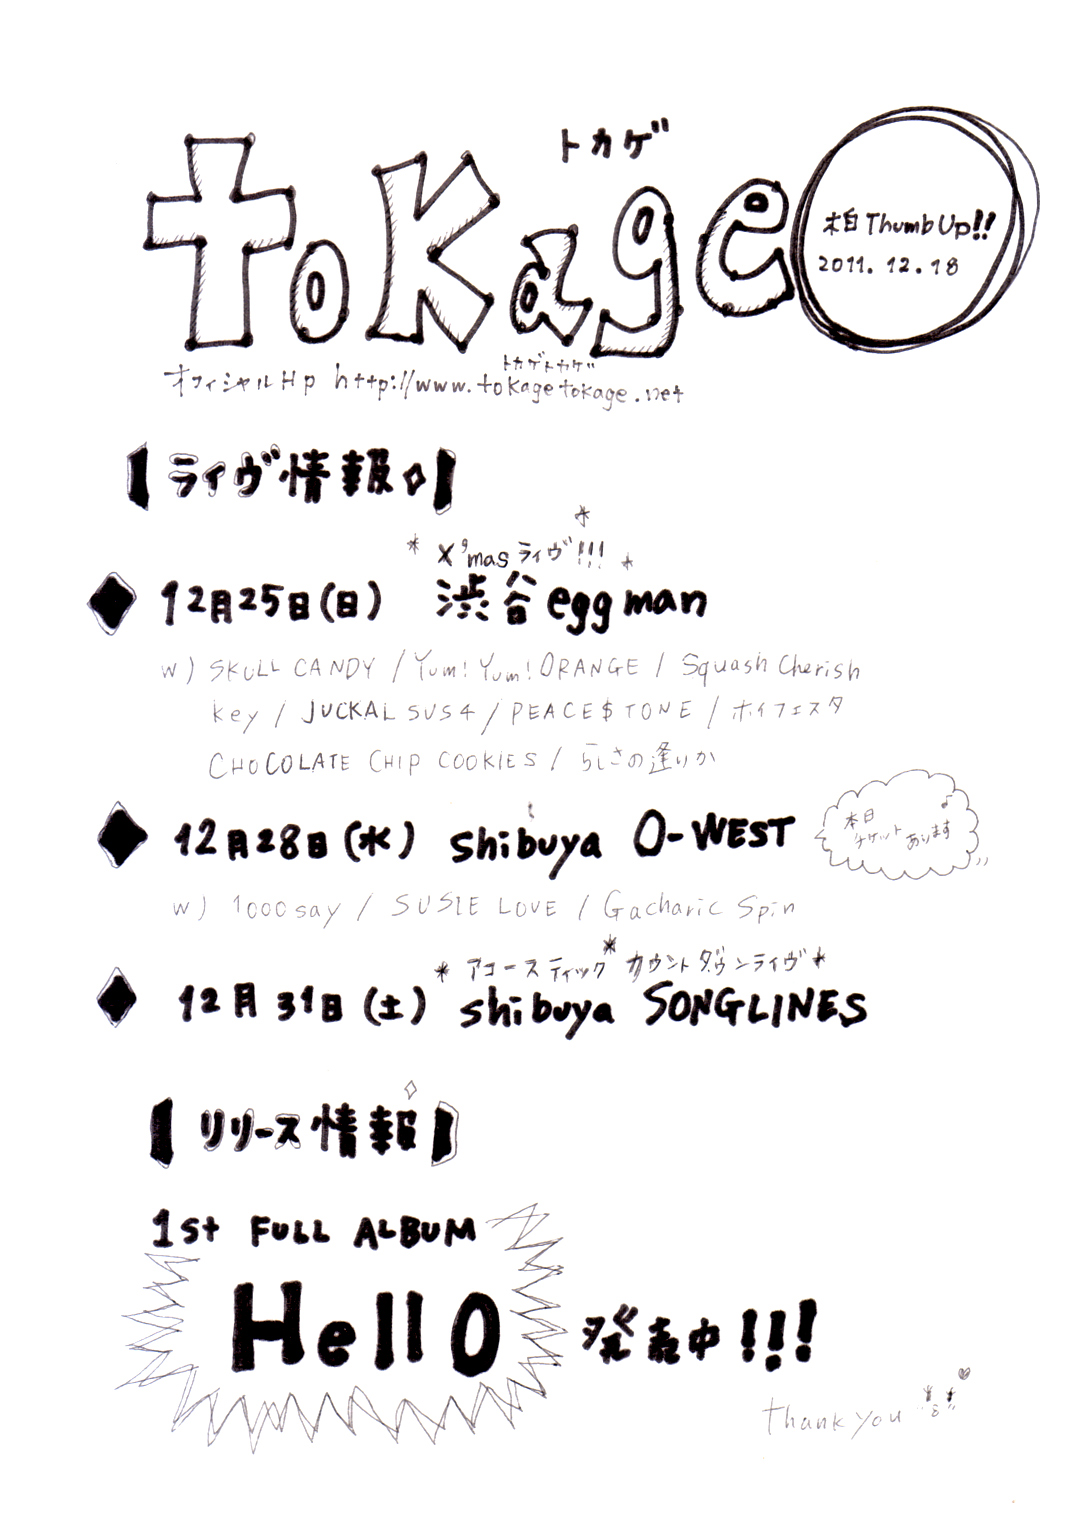 トカゲ
tokage
柏 Thumb Up!!
2011. 12. 18
トカゲトカゲ
オフィシャルHp http://www.tokagetokage.net
【ライヴ情報】
X'mas ライヴ!!!
12月25日(日) 渋谷eggman
w) SKULL CANDY / Yum! Yum! ORANGE / Squash Cherish
key / JUCKAL SUS4 / PEACE$TONE / ホイフェスタ
CHOCOLATE CHIP COOKIES / らしさの逢りか
12月28日(水) shibuya O-WEST
本日
チケット
あります♪
w) 1000say / SUSIE LOVE / Gacharic Spin
*アコースティック*カウントダウンライヴ*
12月31日(土) shibuya SONGLINES
【リリース情報】
1st FULL ALBUM
HellO 発売中!!!
thank you